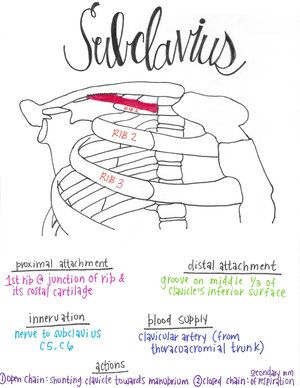 Subclavius
RIB 1
RIB 2
RIB 3
proximal attachment
1st rib @ junction of rib &
its costal cartilage
distal attachment
groove on middle 1/3 of
clavicle's inferior surface
innervation
nerve to subclavius
C5, C6
blood supply
clavicular artery (from
thoracoacromial trunk)
actions
①open chain: shunting clavicle towards manubrium ②closed chain: 2ondary mm of respiration